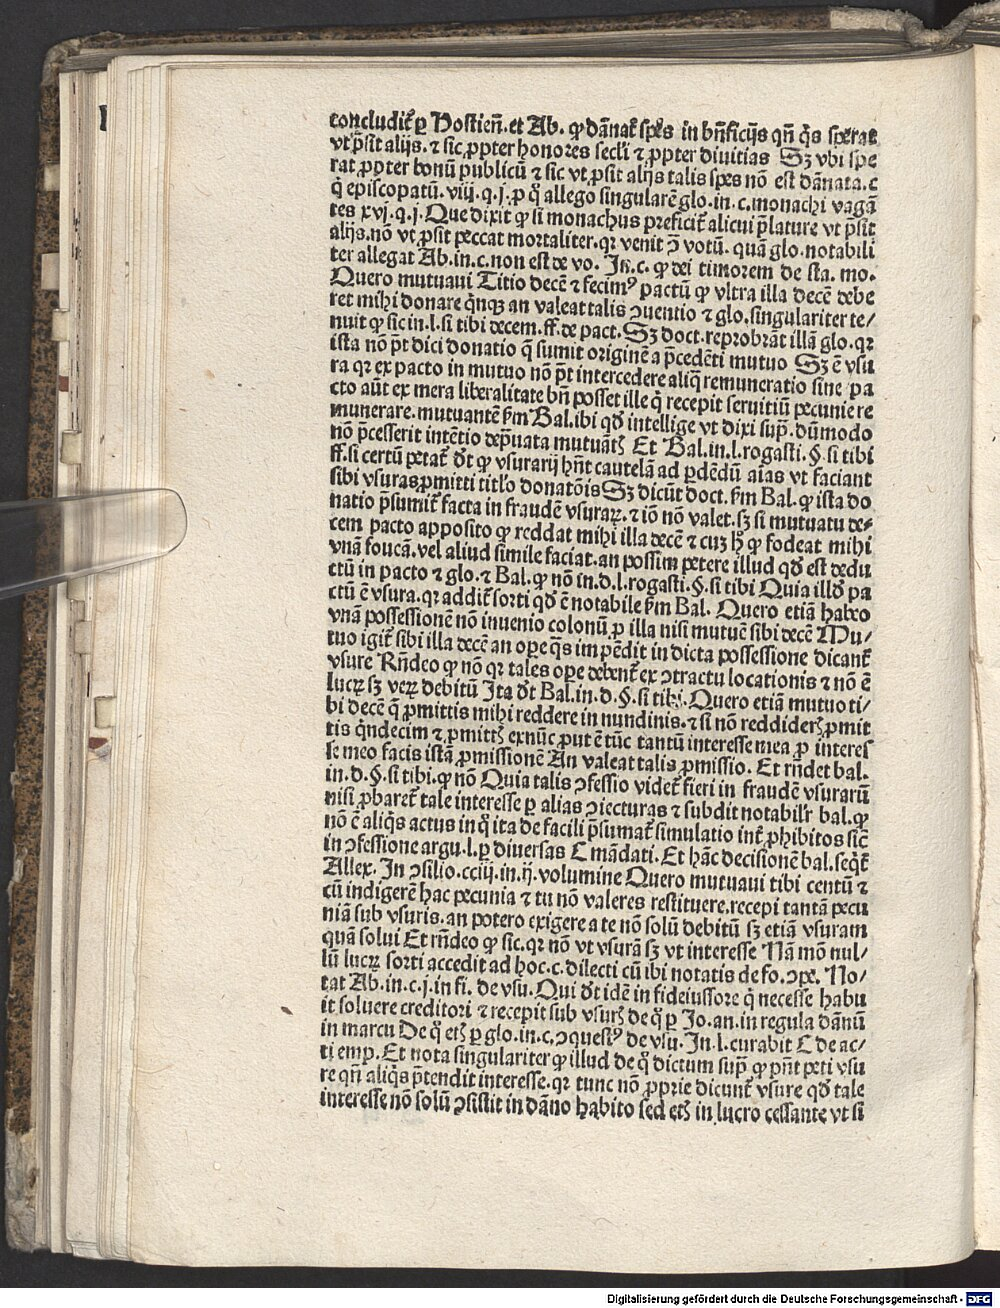 concludit᷑ ꝑ Hostien̄. et Ab. ꝙ dānat᷑ spēs in bn̄ficijs qn̄ q̇s sperat
vt p̄sit alijs. ⁊ sic ꝓpter honores secl'i ⁊ ꝓpter diuitias Sꝫ vbi spe
rat ꝓpter bonū publicū ⁊ sic vt ꝓsit alijs talis spes nō est dānata. c
q̄ episcopatū. viij. q. j. ꝓ q̊ allego singularē glo. in. c. monachi vagā
tes xvj. q. j. Que dixit ꝙ si monachus preficit᷑ alicui p̄lature vt p̄sit
alijs. nō vt ꝓsit peccat mortaliter. qꝛ venit ↄ̄ votū. quā glo. notabili
ter allegat Ab. in. c. non est de vo. In. c. ꝙ dei timorem de sta. mo.
Quero mutuaui Titio decē ⁊ fecimꝰ pactū ꝙ vltra illa decē debe
ret mihi donare q̇nqꝫ an valeat talis ↄuentio ⁊ glo. singulariter te/
nuit ꝙ sic in. l. si tibi decem. ff. de pact. Sꝫ doct. reprobrāt illā glo. qꝛ
ista nō pōt dici donatio q̄ sumit originē a p̄cedēti mutuo Sꝫ ē vsu
ra qꝛ ex pacto in mutuo nō pōt intercedere aliq̄ remuneratio sine pa
cto aūt ex mera liberalitate bn̄ posset ille q̇ recepit seruitiū pecunie re
munerare. mutuantē ẜm Bal. ibi qd̄ intellige vt dixi sup̄. dūmodo
nō p̄cesserit intētio dep̄uata mutuātꝭ Et Bal. in. l. rogasti. §. si tibi
ff. si certū petat᷑ dt̄ ꝙ vsurarij hn̄t cautelā ad ꝑdēdū aīas vt faciant
sibi vsuras ꝑmitti titl'o donatōis Sꝫ dicūt doct. ẜm Bal. ꝙ ista do
natio p̄sumit᷑ facta in fraudē vsuraꝝ. ⁊ iō nō valet. sꝫ si mutuatu de-
cem pacto apposito ꝙ reddat mihi illa decē ⁊ cuꝫ h̊ ꝙ fodeat mihi
vnā foueā. vel aliud simile faciat. an possim petere illud qd̄ est dedu
ctū in pacto ⁊ glo. ⁊ Bal. ꝙ nō in. d. l. rogasti. §. si tibi Quia illd̄ pa
ctū ē vsura. qꝛ addit᷑ sorti qd̄ ē notabile ẜm Bal. Quero etiā habeo
vnā possessionē nō inuenio colonū ꝓ illa nisi mutuē sibi decē Mu/
tuo igit᷑ sibi illa decē an ope q̄s impēdit in dicta possessione dicant᷑
vsure Rn̄deo ꝙ nō qꝛ tales ope debent᷑ ex ↄtractu locationis ⁊ nō ē
lucꝝ sꝫ veꝝ debitū Ita dt̄ Bal. in. d. §. si tibi. Quero etiā mutuo ti/
bi decē q̄ ꝓmittis mihi reddere in nundinis. ⁊ si nō reddiderꝭ ꝓmit
tis q̇ndecim ⁊ ꝓmittꝭ exnūc ꝓut ē tūc tantū interesse mea ꝓ interes
se meo facis istā ꝓmissionē An valeat talis ꝓmissio. Et rn̄det bal.
in. d. §. si tibi. ꝙ nō Quia talis ↄfessio videt᷑ fieri in fraudē vsurarū
nisi ꝓbaret᷑ tale interesse ꝑ alias ↄiecturas ⁊ subdit notabilr̄ bal. ꝙ
nō ē aliq̇s actus in q̊ ita de facili p̄sumat᷑ simulatio int᷑ ꝓhibitos sic̄
in ↄfessione argu. l. ꝑ diuersas C mādati. Et hāc decisionē bal. seq̇t᷑
Allex. In ↄsilio. cciij. in. ij. volumine Quero mutuaui tibi centū ⁊
cū indigerē hac pecunia ⁊ tu nō valeres restituere. recepi tantā pecu
niā sub vsuris. an potero exigere a te nō solū debitū sꝫ etiā vsuram
quā solui Et rn̄deo ꝙ sic. qꝛ nō vt vsurā sꝫ vt interesse Nā mō nul/
lū lucꝝ sorti accedit ad hoc. c. dilecti cū ibi notatis de fo. ↄpe. No/
tat Ab. in. c. j. in fi. de vsu. Qui dt̄ idē in fideiussore q̇ necesse habu
it soluere creditori ⁊ recepit sub vsurꝭ de q̊ ꝑ Jo. an. in regula dānū
in marcu De q̊ etꝭ ꝑ glo. in. c. ↄquestꝰ de vsu. In. l. curabit C de ac/
ti emp. Et nota singulariter ꝙ illud de q̊ dictum sup̄ ꝙ pn̄t peti vsu
re qn̄ aliq̇s p̄tendit interesse. qꝛ tunc nō ꝓprie dicunt᷑ vsure qd̄ tale
interesse nō solū ↄsistit in dāno habito sed etꝭ in lucro cessante vt si
Digitalisierung gefördert durch die Deutsche Forschungsgemeinschaft - DFG